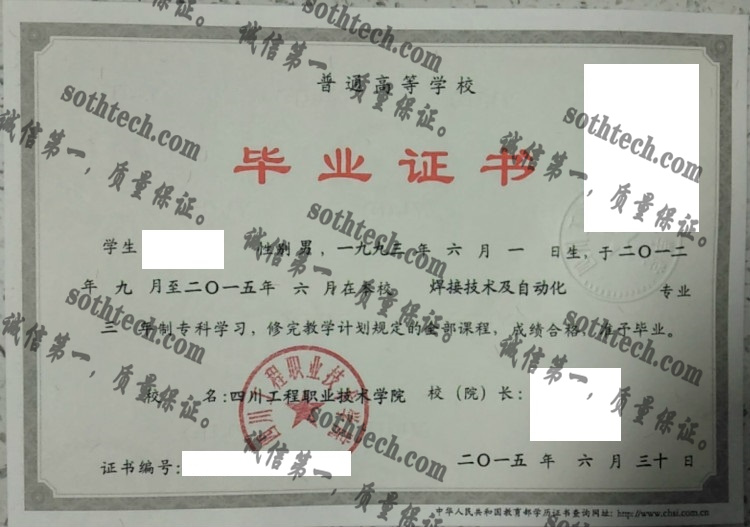 普通高等学校
毕业证书
学生 性别 男，一九九三年 六 月 一 日生，于二〇一二
年 九 月至二〇一五年 六 月在本校 焊接技术及自动化 专业
三 年制专科学习，修完教学计划规定的全部课程，成绩合格，准予毕业。
校 名：四川工程职业技术学院 校（院）长：
四川工程职业技术学院
证书编号： 二〇一五 年 六 月 三十 日
中华人民共和国教育部学历证书查询网址：http://www.chsi.com.cn
sothtech.com
诚信第一，质量保证。
sothtech.com
诚信第一，质量保证。
sothtech.com
诚信第一，质量保证。
sothtech.com
诚信第一，质量保证。
sothtech.com
诚信第一，质量保证。
sothtech.com
诚信第一，质量保证。
sothtech.com
诚信第一，质量保证。
sothtech.com
诚信第一，质量保证。